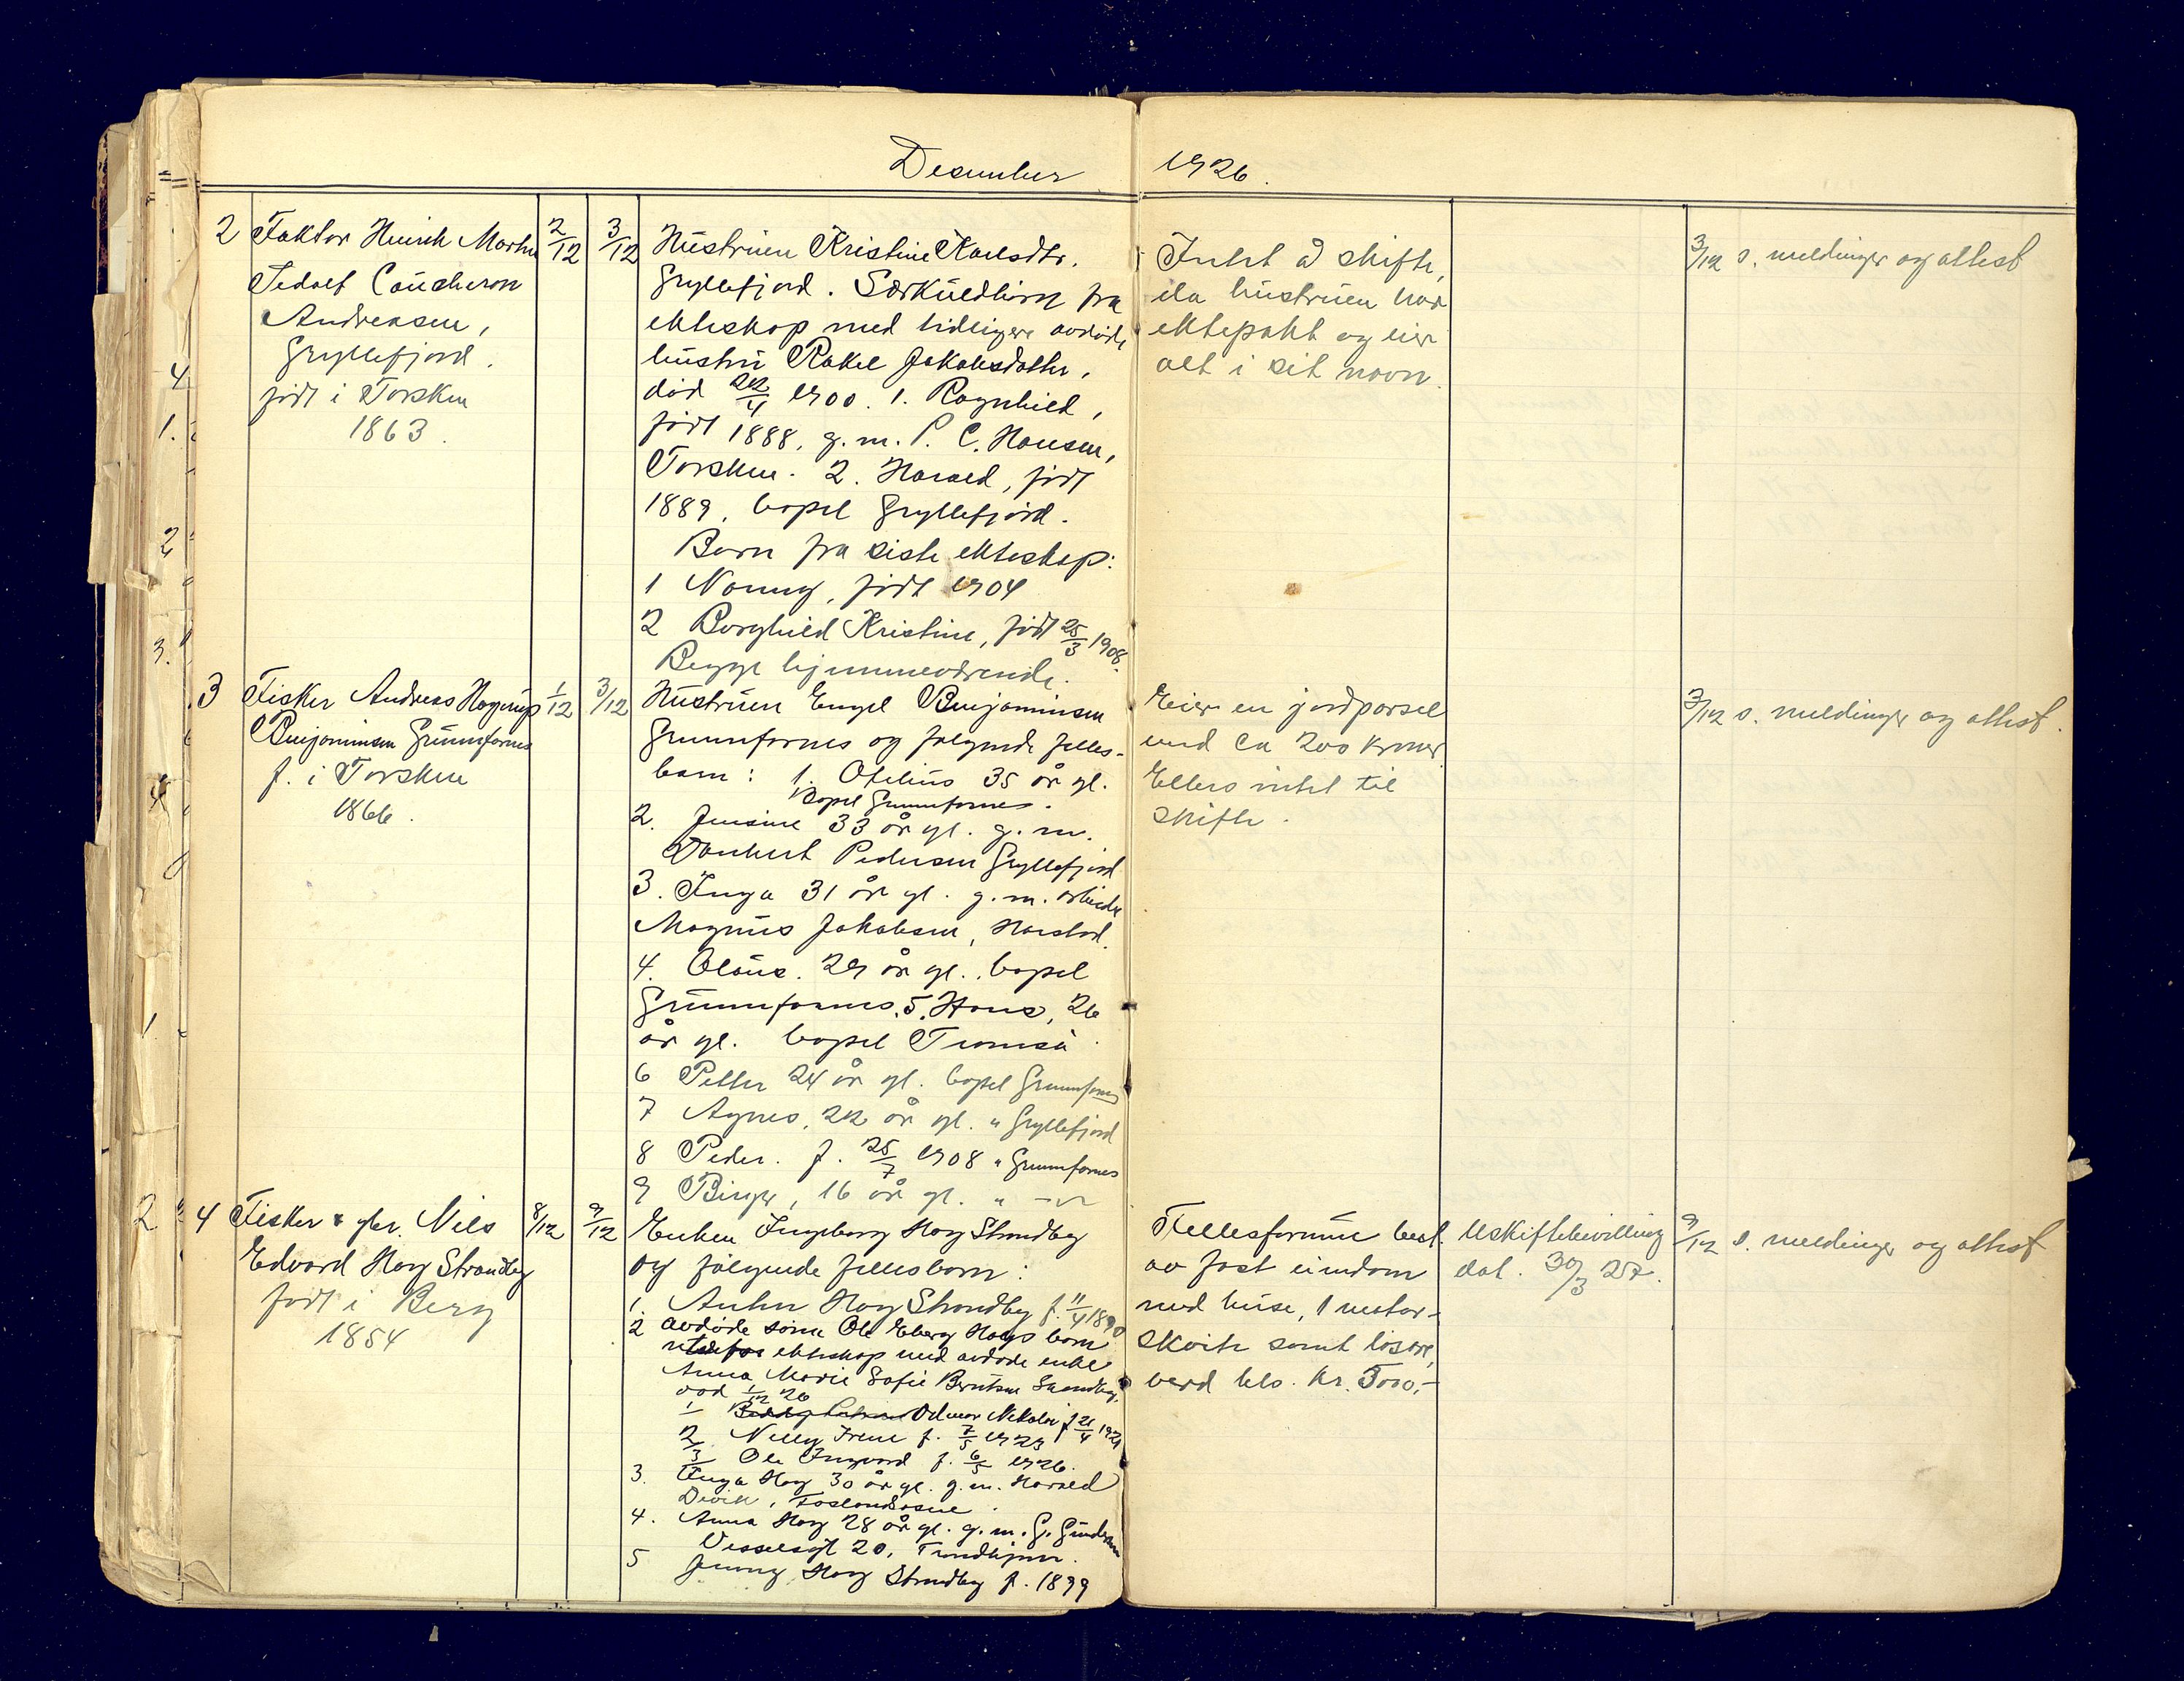 Desember 1926.
2 Faktor Hinrik Martin 2/12 3/12
Tedolf Coucheron
Andreasen,
Gryllefjord.
født i Torsken
1863.
Hustruen Kristine Karlsdtr.
Gryllefjord. Særkuldbørn fra
ekteskap med tidligere avdøde
hustru Rakel Jakobsdatter,
død 22/4 1900. 1. Ragnhild,
født 1888, g.m. P. C. Hansen,
Torsken. 2. Harald, født
1889, bopel Gryllefjord.
Barn fra siste ekteskap:
1 Nanny, født 1904
2 Borghild Kristine, født 25/3 1908.
Begge hjemmeværende.
Intet å skifte,
da hustruen har
ektepakt og eier
alt i sit navn.
3/12 s. meldinger og attest
3 Fisker Andreas Hagerup 1/12 3/12
Benjaminsen Grunnfarnes
f. i Torsken
1866.
Hustruen Engel Benjaminsen
Grunnfarnes og følgende felles-
barn: 1. Otelius 35 år gl.
Bopel Grunnfarnes.
2. Jensine 33 år gl. g.m.
Danhert Pedersen Gryllefjord
3. Inga 31 år gl. g.m. arbeider
Magnus Jakobsen, Harstad.
4. Olaus. 29 år gl., bopel
Grunnfarnes. 5. Hans, 26
år gl. bopel Tromsø.
6 Petter 24 år gl. bopel Grunnfarnes
7 Agnes, 22 år gl. " Gryllefjord
8 Peder. f. 25/7 1908 " Grunnfarnes
9 Birger, 16 år gl. " -"-
Eier en jordparsel
verd ca 200 kroner
Ellers intet til
skifte.
3/12 s. meldinger og attest.
4 Fisker & gbr. Nils 8/12 9/12
Edvard Hog Strandby
født i Berg
1854
Enken Ingeborg Hog Strandby
og følgende fellesbarn:
1. Anton Hog Strandby f. 11/4 1890
2 avdøde sønn Ole Eberg Hogs barn
ekteskap med avdøde enke
Anna Marie Sofie Berntsen Strandby,
død 1/12 26
1 Odmar Nikolai f 21/4 1921
2 Nelly Irene f. 7/5 1923
3 Ole Ingvard f. 6/5 1926.
3. Inga Hog 30 år gl. g.m. Harald
Devik, Foslandsosen
4. Anna Hog 28 år gl. g.m. G. Gundersen
Vesselsgt 20, Trondhjem.
5 Jenny Hog Strandby f. 1899
Fellesformue best.
av fast eiendom
med huse, 1 motor-
skøite samt løsøre,
verd tils. kr. 5000,-
Uskiftebevilling
dat. 30/3 27.
9/12 s. meldinger og attest